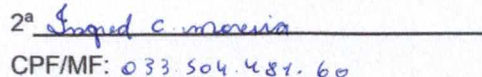 2ª Ingred C. moreira
CPF/MF: 033.504.481.60